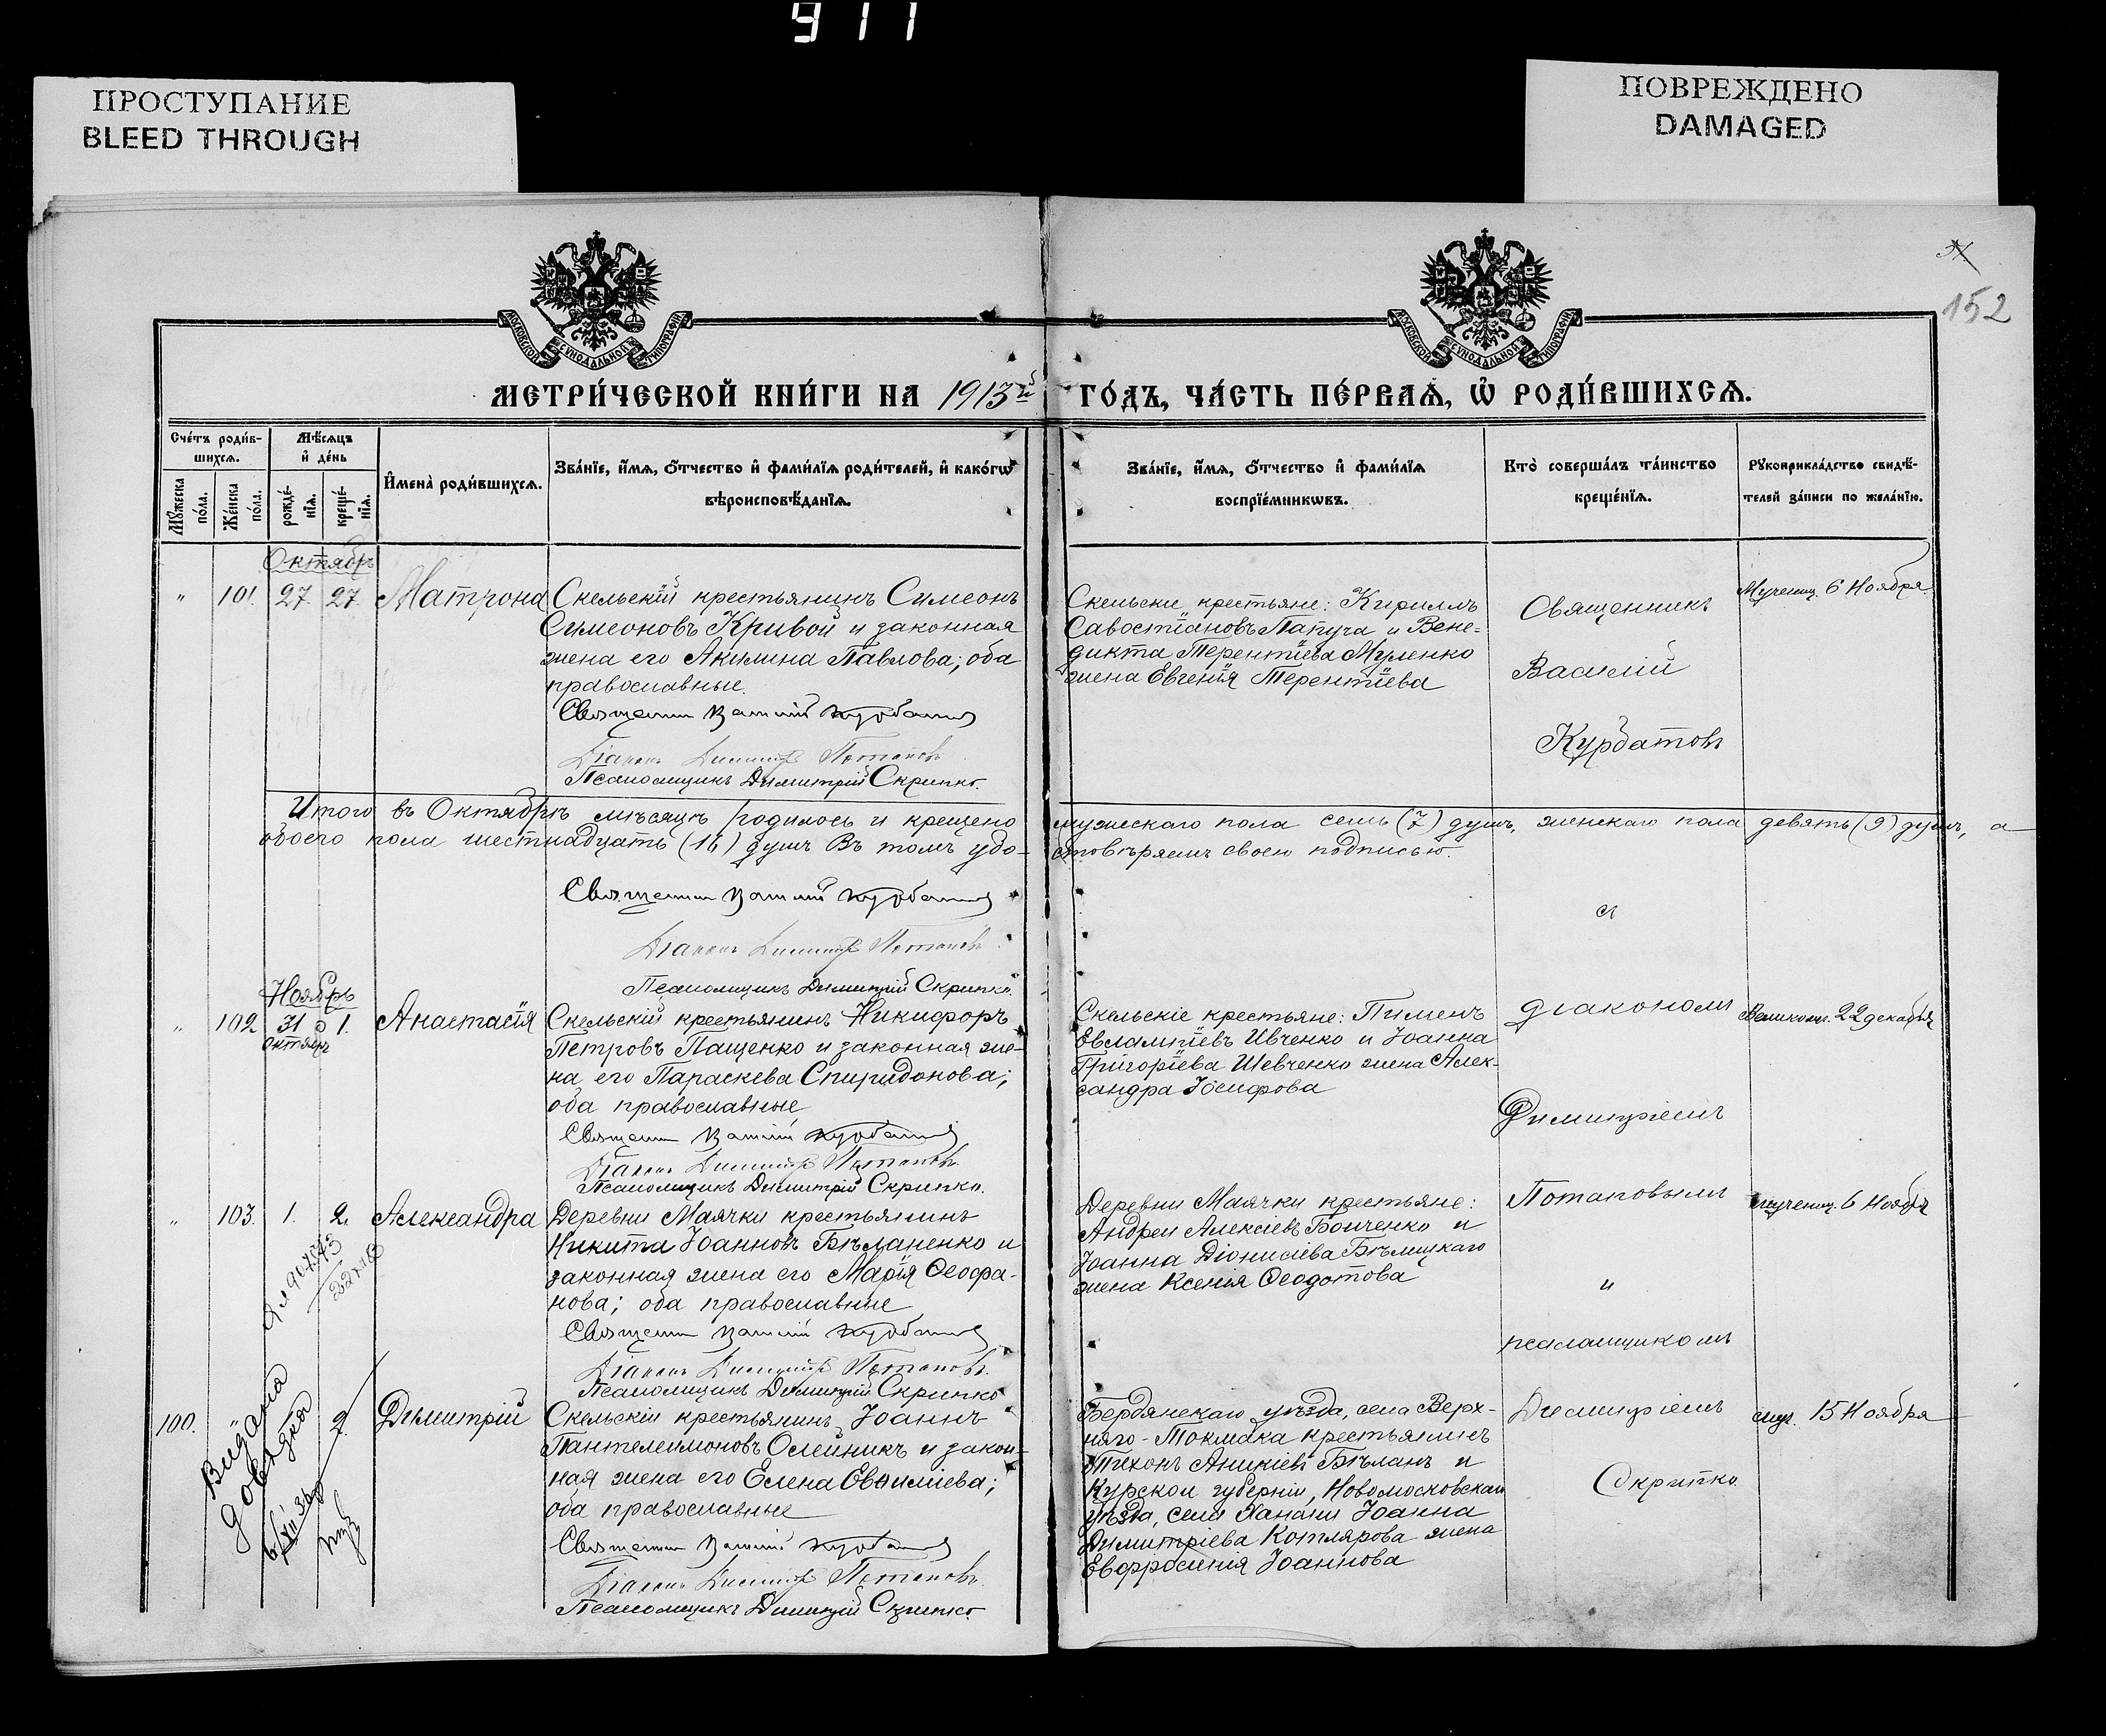 911
ПРОСТУПАНИЕ
BLEED THROUGH
ПОВРЕЖДЕНО
DAMAGED
152
МОСКОВСКОЙ СУНОДАЛЬНОЙ ТИПОГРАФІИ
МОСКОВСКОЙ СУНОДАЛЬНОЙ ТИПОГРАФІИ
МЕТРИ́ЧЕСКОЙ КНИ́ГИ НА 1913й ГО́ДЪ, ЧА́СТЬ ПЕ́РВАѦ, Ѡ РОДИ́ВШИХСѦ.
Сче́тъ роди́в-
шихсѧ.
Мѣ́сѧцъ
и де́нь
Мꙋ́жеска
по́ла.
Же́нска
по́ла.
рожде́-
нїѧ.
креще́-
нїѧ.
И҆мена̀ роди́вшихсѧ.
Зва́нїе, и҆́мѧ, ѻ҆́тчество и҆ фами́лїѧ роди́телей, и҆ како́гѡ
вѣроисповѣ́данїѧ.
Зва́нїе, и҆́мѧ, ѻ҆́тчество и҆ фами́лїѧ
воспрїе́мникѡвъ.
Кто̀ соверша́лъ та́инство
креще́нїѧ.
Рꙋкоприкла́дство свидѣ́-
телей за́писи по жела́нїю.
Октябрь
" 101. 27. 27. Матрона
Скельскій крестьянинъ Симеонъ
Симеоновъ Кривой и законная
жена его Акилина Павлова; оба
православные.
Священник Василій Курбатов
Діаконъ Димитрій Потаповъ
Псаломщикъ Димитрій Скрипко.
Скельски крестьяне: Кириллъ
Савостіановъ Папуча и Вене-
дикта Терентіева Муленко
жена Евгенія Терентіева
Священникъ
Василій
Курбатовъ
Мучениц. 6 Ноября.
Итого въ Октябрѣ мѣсяцѣ родилось и крещено мужескаго пола семь (7) душъ, женскаго пола девять (9) душъ, а
обоего пола шестнадцать (16) душъ Въ томъ удо- стовѣряемъ своею подписью.
Священник Василій Курбатов
Діаконъ Димитрій Потаповъ.
Псаломщикъ Димитрій Скрипко.
Ноябрь
" 102 31 1. Анастасія
Октябр
Скельскій крестьянинъ Никифоръ
Петровъ Пащенко и законная же-
на его Параскева Спиридонова;
оба православные
Священник Василій Курбатов
Діаконъ Димитрій Потаповъ.
Псаломщикъ Димитрій Скрипко.
Скельскіе крестьяне: Пименъ
Евлампіевъ Ивченко и Іоанна
Григоріева Шевченко жена Алек-
сандра Іосифова
діакономъ
Димитріемъ
Великом. 22 декабря
" 103. 1. 2. Александра
Деревни Маячки крестьянинъ
Никита Іоанновъ Бѣланенко и
законная жена его Марія Ѳеофа-
нова; оба православные
Священник Василій Курбатов
Діаконъ Димитрій Потаповъ.
Псаломщикъ Димитрій Скрипко
Деревни Маячки крестьяне:
Андрей Алексіевъ Бойченко и
Іоанна Діонисіева Бѣлицкаго
жена Ксенія Ѳеодотова
Потаповымъ
и
псаломщикомъ
мучениц. 6 Ноября
100. 2. Димитрій
Видана
довідка
Скельскій крестьянинъ Іоаннъ
Пантелеимоновъ Олейникъ и закон-
ная жена его Елена Евфиміева;
оба православные
Священник Василій Курбатов
Діаконъ Димитрій Потаповъ.
Псаломщикъ Димитрій Скрипко.
Бердянскаго уѣзда, села Верх-
няго-Токмака крестьянинъ
Тихонъ Аникіевъ Бѣланъ и
Курской губерніи, Новомосковскаго
уѣзда, села Іоанна
Димитріева Котлярова жена
Евфросинія Іоаннова
Димитріемъ
Скрипко.
муч. 15 Ноября